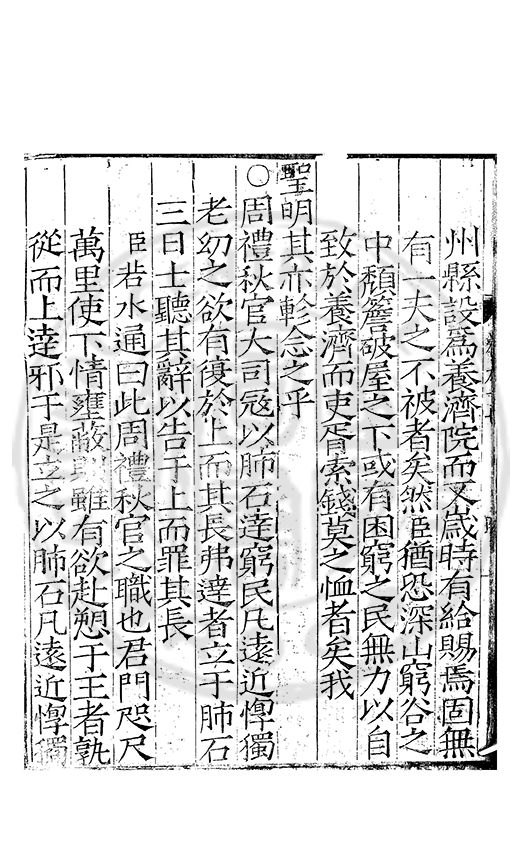 州縣設爲養濟院而又歲時有給賜焉固無
有一夫之不被者矣然臣猶恐深山窮谷之
中頹簷破屋之下或有困窮之民無力以自
致於養濟而吏胥索錢莫之恤者矣我
聖明其亦軫念之乎
○周禮秋官大司寇以肺石達窮民凡遠近惸獨
老幼之欲有復於上而其長弗達者立于肺石
三日士聽其辭以告于上而罪其長
臣若水通曰此周禮秋官之職也君門咫尺
萬里使下情壅蔽則雖有欲赴愬于王者孰
從而上達邪于是立之以肺石凡遠近惸獨